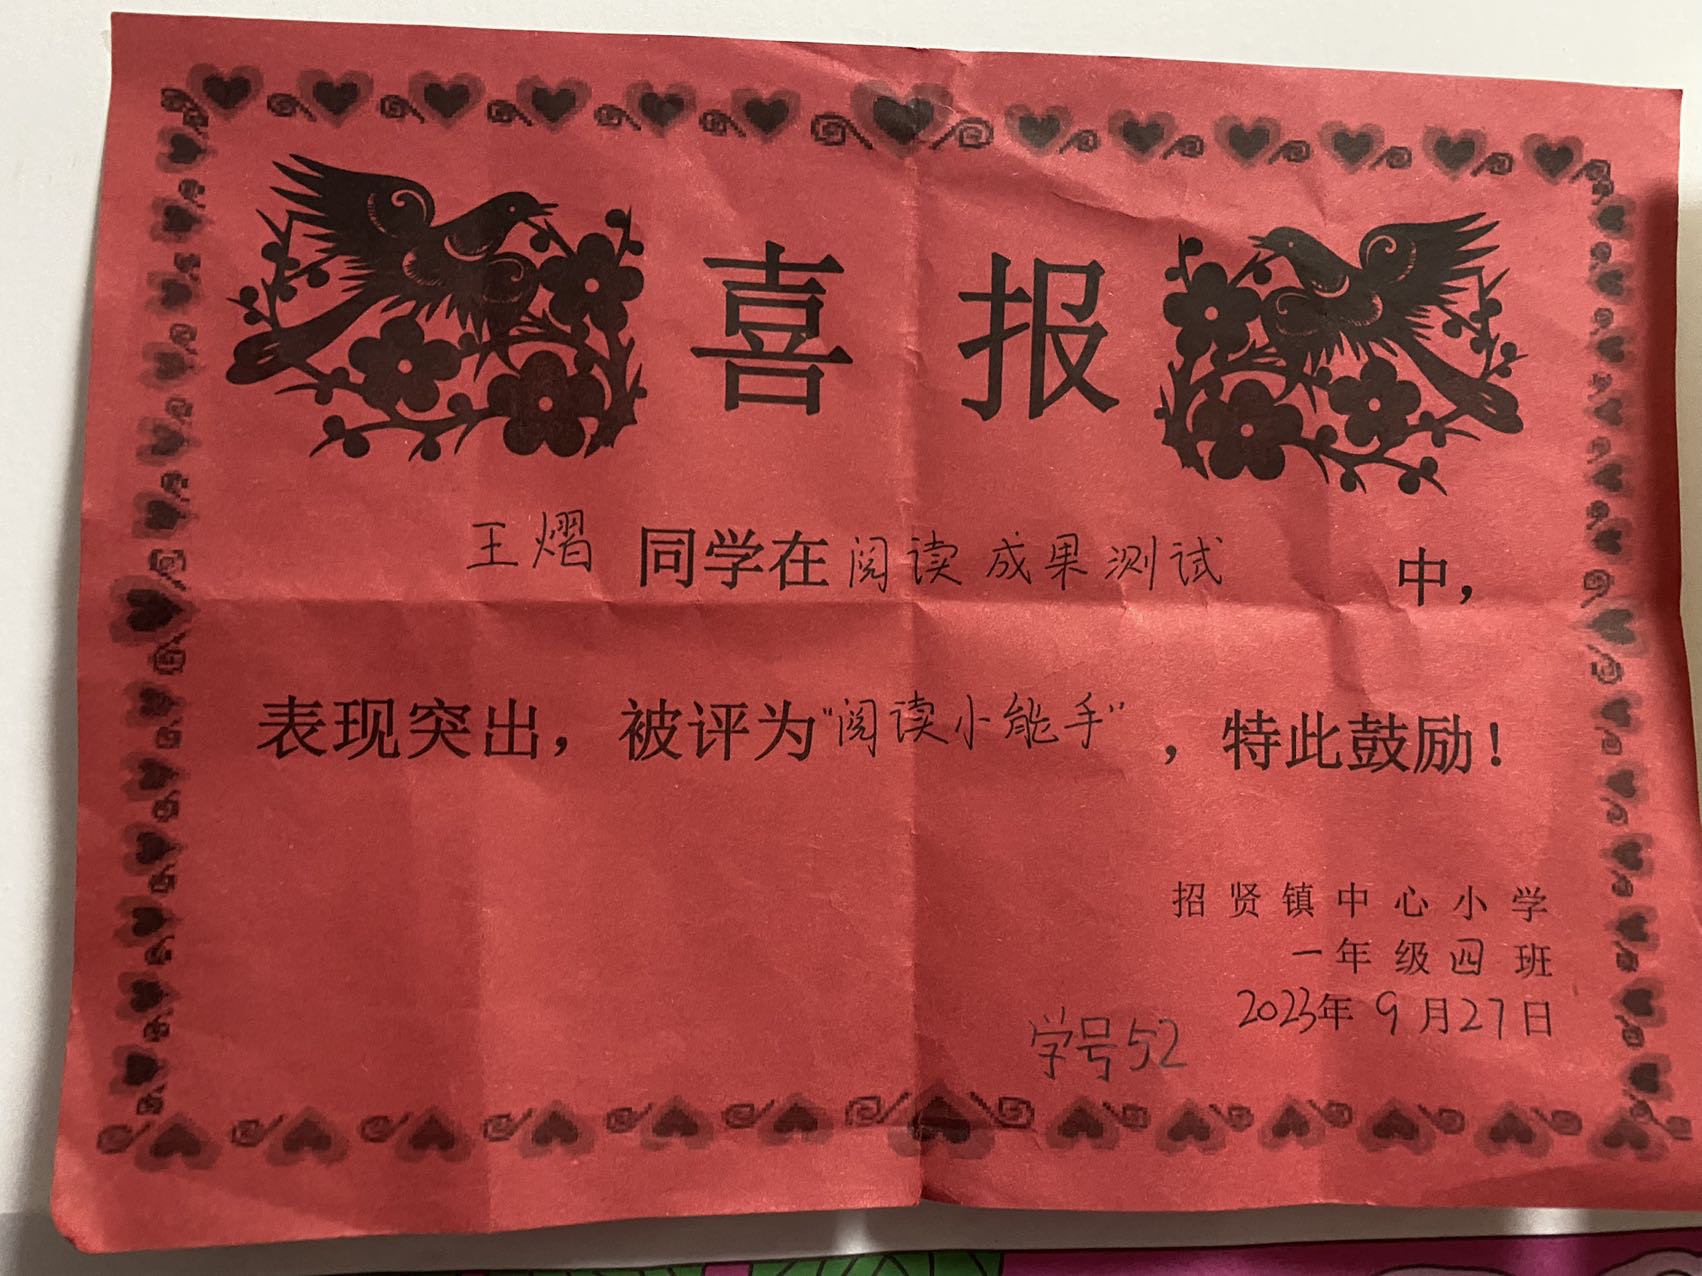 喜报
王熠同学在阅读成果测试中，
表现突出，被评为“阅读小能手”，特此鼓励！
招贤镇中心小学
一年级四班
2023年9月27日
学号52